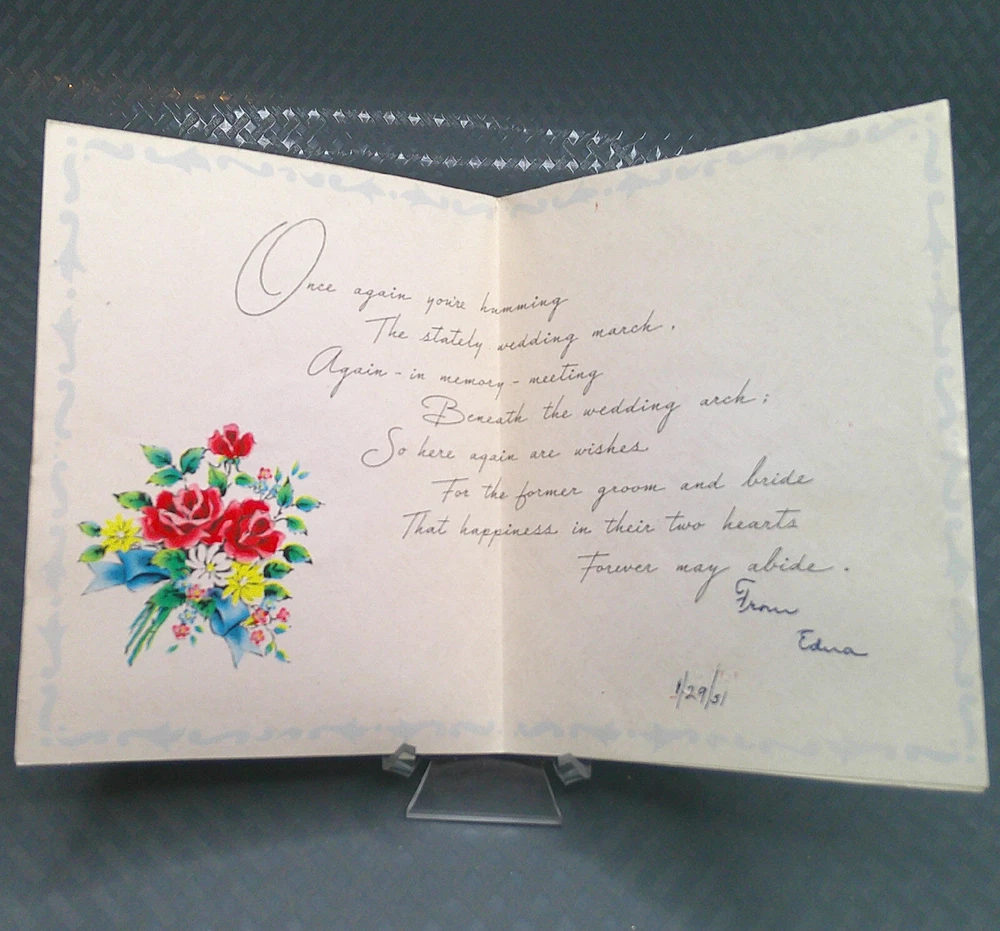 Once again you're humming
The stately wedding march.
Again - in memory - meeting
Beneath the wedding arch;
So here again are wishes
For the former groom and bride
That happiness in their two hearts
Forever may abide.
From
Edna
1/29/51